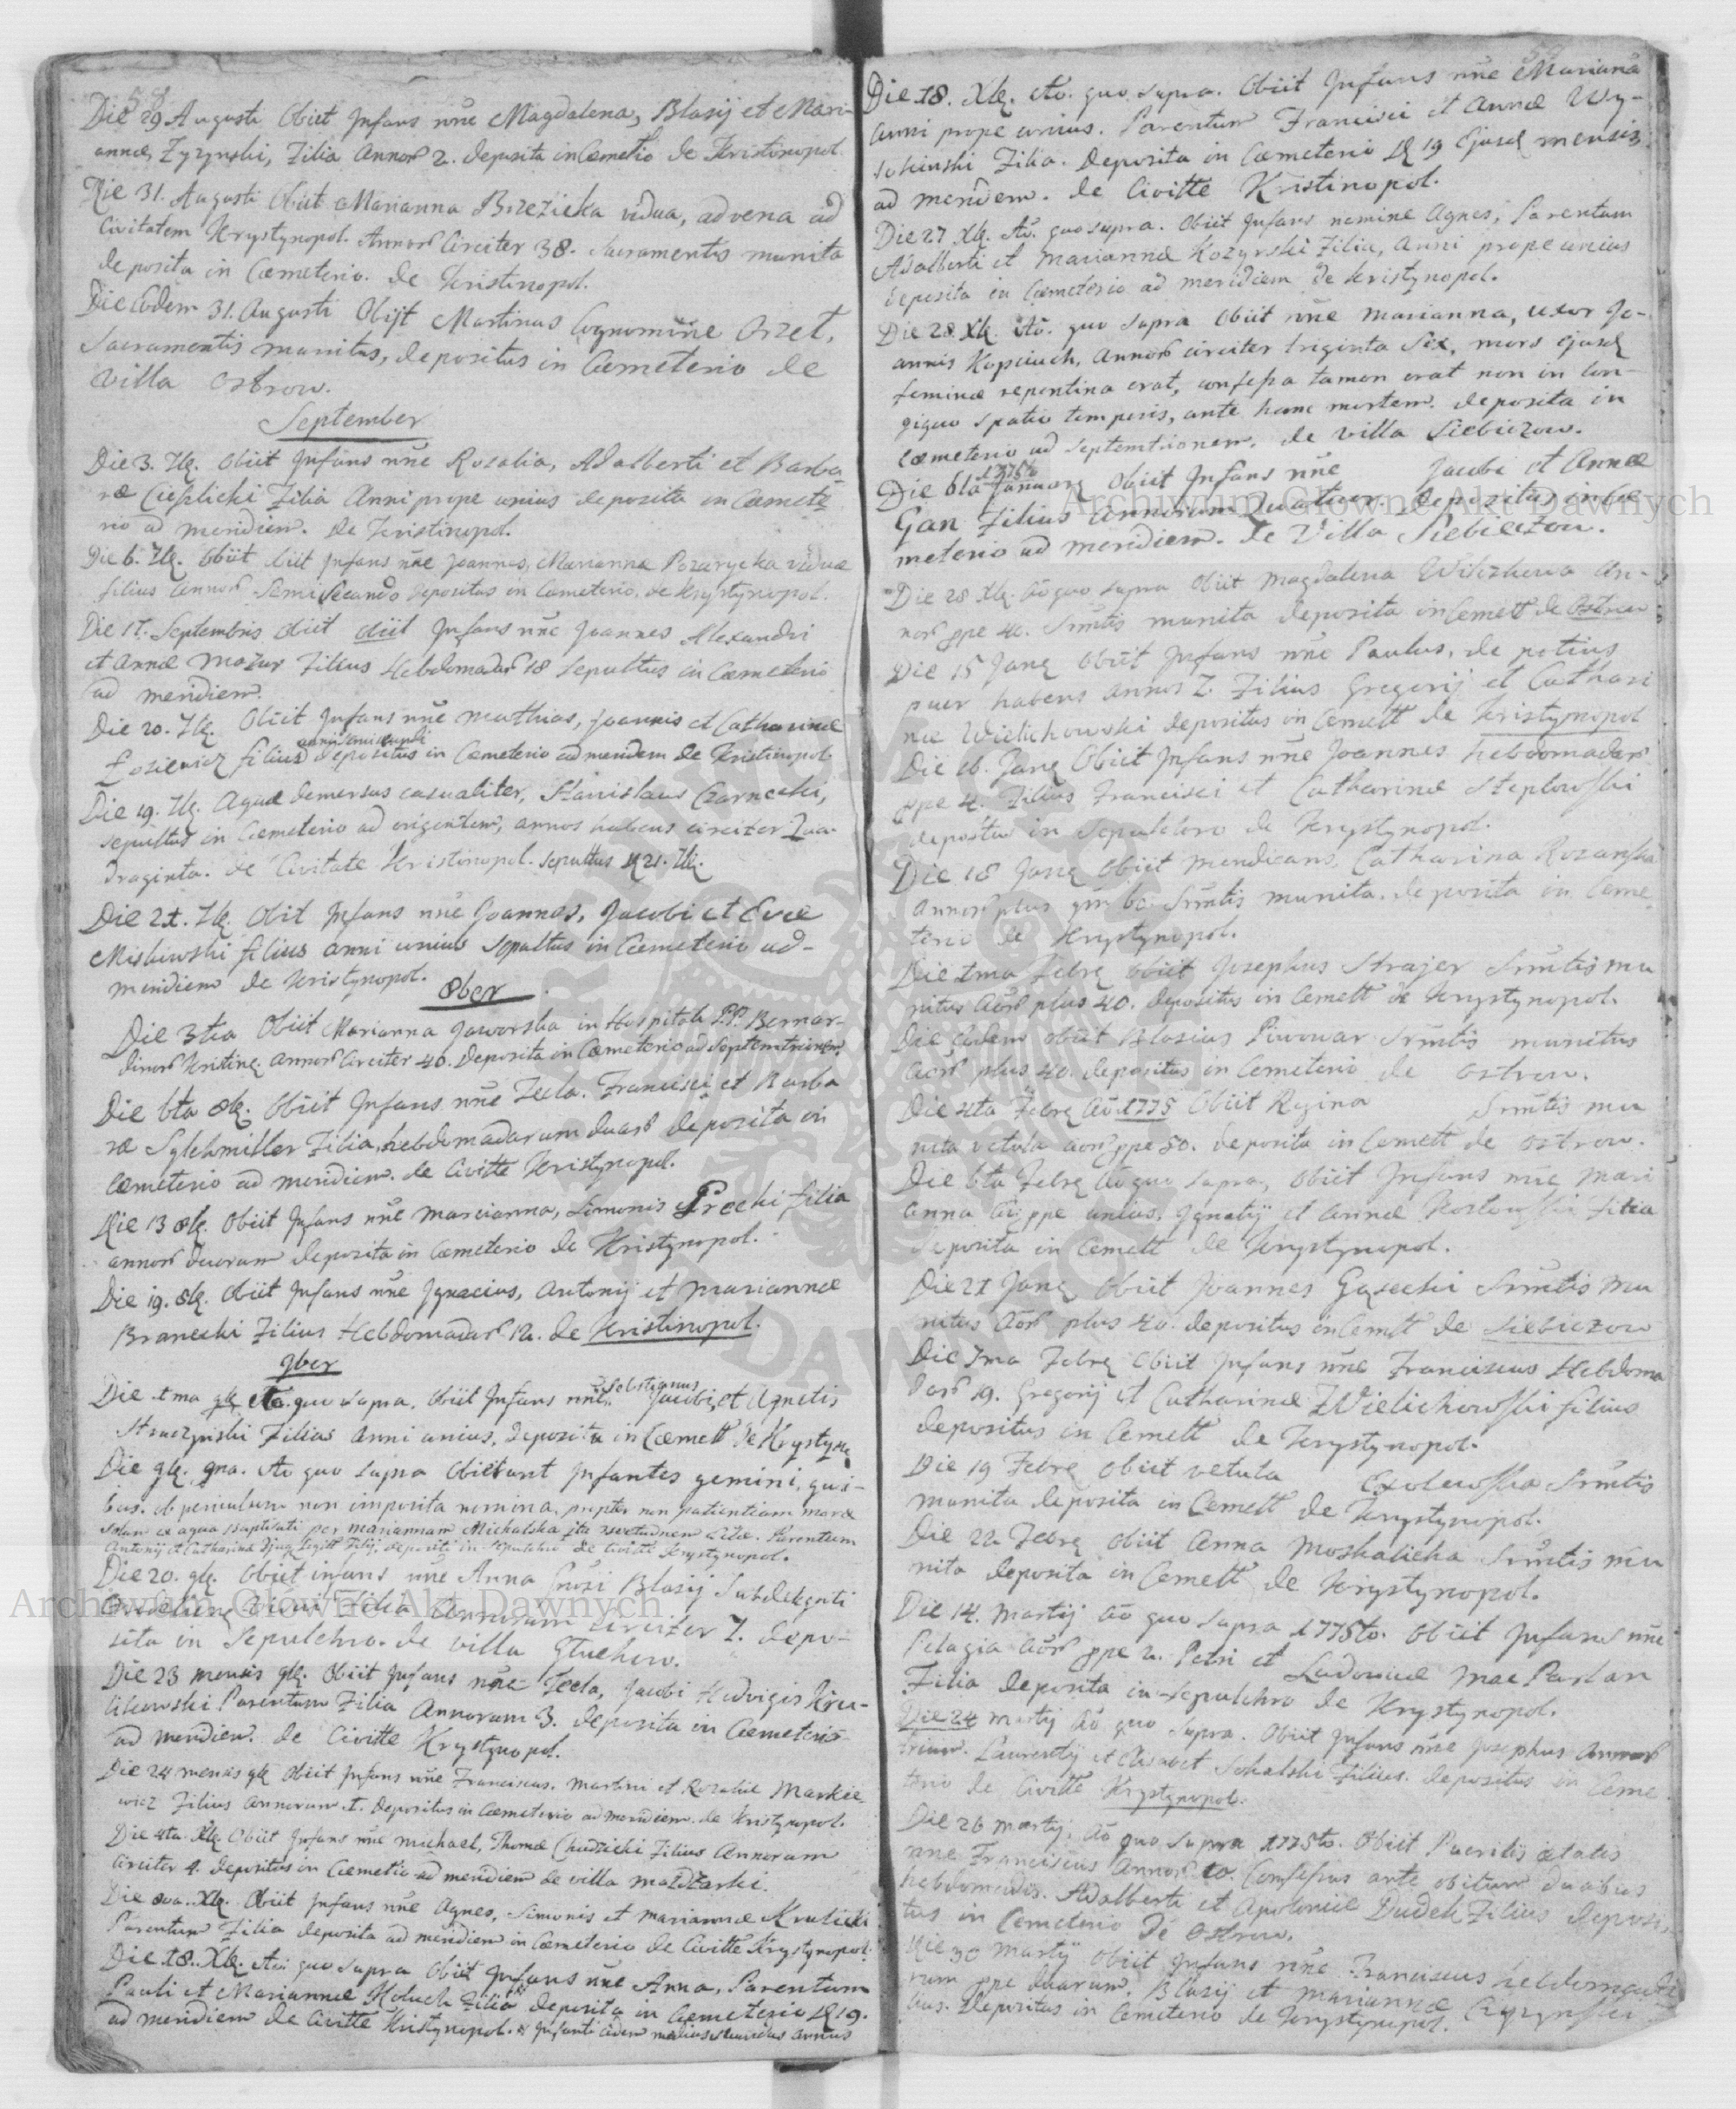 Die 29 Augusti Obiit Infans nne Magdalena, Blasij et Mari-
annæ, Zyzynski, Filia Annor 2. deposita in Cæmetio de Kristinopol.
Die 31. Augusti Obiit Marianna Brezicka vidua, advena ad
Civitatem Krystynopol. Annor Circiter 38. Sacramentis munita
deposita in Cæmeterio. de Kristinopol.
Die Eodem 31. Augusti Obijt Martinus Cognomine Orzet,
Sacramentis munitus, depositus in Cæmeterio de
Villa Ostrow.
September
Die 3. 7bg. Obiit Infans nne Rozalia, Adalberti et Barba
ræ Cieplicki Filia Anni prope unius deposita in Cæmete
rio ad meridiem. de Kristinopol.
Die 6. 7bg. Obiit Infans nne Joannes, Marianna Pozarycka vidua
filius Annor Semi Secundo depositus in Cæmeterio. de Krystynopol.
Die 17. Septembris obiit obiit Infans nne Joannes Alexandri
et Annæ Mazur Filius Hebdomadar 18 Sepultus in Cæmeterio
ad meridiem.
Die 20. 7bg. Obiit Infans nne Mathias, Joannis et Catharinæ
filius depositus in Cæmeterio ad meridiem de Kristinopol
Die 19. 7bg. Aquæ demersus casualiter, Stanislaus Czarnecki,
sepultus in Cæmeterio ad orientem, annos habens circiter Qua-
draginta. de Civitate Kristinopol. sepultus 21. 7bg.
Die 21. 7bg. Obit Infans nne Joannes, Jacobi et Evæ
Miskiewski filius anni unius sepultus in Cæmeterio ad-
meridiem de Kristynopol.
8ber
Die 3tia Obiit Marianna Jaworska in Hospitali P.P. Bernar-
dinor Kristing. annor Circiter 40. Deposita in Cæmeterio ad Septemtrionem.
Die 6ta 8bg. Obiit Infans nne Tecla. Francisci et Barba
ræ Sylchmiller Filia, hebdomadarum duar deposita in
Cæmeterio ad meridiem. de Civitte Kristynopol.
Die 13 8bg. Obiit Infans nne Marianna, Simonis Precki filia
annor duorum deposita in Cæmeterio de Kristynopol.
Die 19. 8bg. Obiit Infans nne Ignacius, Antonij et Mariannæ
Branecki Filius Hebdomadar 12. de Kristinopol.
9ber
Die 1ma 9bg. Ao. quo supra. Obiit Infans nne Sebstianus Jacobi, et Agnetis
Filius Anni unius, deposita in Cæmett de Krystyn
Die 9bg. 9na. Ao quo supra Obierunt Infantes gemini, qui-
bus. ob periculum non imposita nomina, propter non patientiam moræ
solum ex aqua Baptisati per Mariannam Michalska Parentum
Antonij et Catharinæ Filij, depositi in Sepulchro de Civitte Krystynopol.
Die 20. 9bg. Obiit infans nne Anna Gnosi Blasij Subdelegati
Filia Annorum circiter 7. depo-
sita in Sepulchro. de Villa Gluchow.
Die 23 mensis 9bg. Obiit Infans nne Tecla, Jacobi Hedvigis Kru-
likowski Parentum Filia Annorum 3. deposita in Cæmeterio
ad meridiem. de Civitte Krystynopol.
Die 24 mensis 9bg Obiit Infans nne Franciscus. Martini et Rozaliæ Markie-
wicz Filius Annorum 1. depositus in Cæmeterio ad meridiem. de Kristynopol.
Die 4ta. Xbg. Obiit Infans nne Michael, Thomæ Chudzicki Filius Annorum
circiter 4. depositus in Cæmetio ad meridiem de villa Madzarki.
Die 8va. Xbg. Obiit Infans nne Agnes, Simonis et Mariannæ Krulicki
Parentum Filia deposita ad meridiem in Cæmeterio de Civitte Krystynopol.
Die 18. Xbg. Ao. quo supra Obiit Infans nne Anna, Parentum
Pauli et Mariannæ Holuch Filia deposita in Cæmeterio 19.
ad meridiem de Civitte Kristynopol.
Die 18. Xbg. Ao. quo supra. Obiit Infans nne Marianna
anni prope unius. Parentum Francisci et Annæ Wy-
sokinski Filia. Deposita in Cæmeterio 19 Ejusd mensis
ad meridiem. de Civitte Kristinopol.
Die 27 Xbg. Ao. quo supra. Obiit Infans nomine Agnes, Parentum
Adalberti et Mariannæ Kozyrski Filia, anni prope unius
deposita in Cæmeterio ad meridiem de Kristynopol.
Die 28 Xbg. Ao. quo supra Obiit nne Marianna, uxor Jo-
annis Kapciuch, Annor circiter triginta Sex, mors ejusd
feminæ repentina erat, confessa tamen erat non in lon-
giquo spatio temporis, ante hanc mortem. deposita in
cæmeterio ad septemtrionem. de villa Siebieczow.
Die 6ta January 1775to Obiit Infans nne Jacobi et Annæ
Gan Filius annorum quatuor. depositus in Cæ
meterio ad meridiem. de Villa Siebieczow.
Die 28 Xbg. Ao quo supra Obiit Magdalena Wilczkowa An-
nor ppe 40. Srmtis munita deposita in Cemett de Ostrow
Die 15 Jang Obiit Infans nne Paulus, de potius
puer habens annos 7. Filius Gregorij et Cathari
næ Wielichowski depositus in Cemett de Kristynopol
Die 16. Jang Obiit Infans nne Joannes hebdomadar
ppe 4. Filius Francisci et Catharinæ Steplowski
depositus in Sepulchro de Krystynopol.
Die 18 Jang Obiit mendicans, Catharina Rozanska
Annor plus qm 60 Srmtis munita. deposita in Ceme
terio de Krystynopol.
Die 1ma Febrg Obiit Josephus Strajer Srmtis mu
nitus aor plus 40. depositus in Cemett de Krystynopol.
Die Eadem obiit Blasius Piwowar Srmtis munitus
aor plus 40. depositus in Cemeterio de Ostrow.
Die 4ta Febrg Ao 1775 Obiit Regina Srmtis mu
nita vetula aor ppe 50. deposita in Cemett de Ostrow.
Die 6ta Febrg Ao quo supra, Obiit Infans nne Mari
anna ppe unius, Ignatij et Annæ Kozlowski Filia
deposita in Cemett de Krystynopol.
Die 21 Jang Obiit Joannes Gąsecki Srmtis mu
nitus aor plus 40. depositus in Cemett de Siebieczow
Die 7ma Febrg Obiit Infans nne Franciscus Hebdoma
dar 19. Gregorij et Catharinæ Wielichowski filius
depositus in Cemett de Krystynopol.
Die 19 Febrg obiit vetula Srmtis
munita deposita in Cemett de Krystynopol.
Die 22 Febrg obiit Anna Moskalicka Srmtis mu
nita deposita in Cemett de Krystynopol.
Die 14. Martij Ao quo supra 1775to. Obiit Infans nne
Pelagia aor ppe 2. Petri et Ludovicæ Mac Parlan
Filia deposita in Sepulchro de Krystynopol.
Die 24 Martij Ao quo supra. Obiit Infans nne Josephus Annor
trium. Laurentij et Elisabet Sokalski Filius. depositus in Ceme
terio de Civitte Krystynopol.
Die 26 Martij. Ao quo supra 1775to. Obiit Puerilis ætatis
nne Franciscus Annor 10. Confessus ante obitum duabus
hebdomadis. Adalberti et Apoloniæ Dudek Filius deposi-
tus in Cemeterio De Ostrow.
Die 30 Martij Obiit Infans nne Franciscus hebdomada
rum ppe duarum, Blasij et Mariannæ
lius. depositus in Cemeterio de Krystynopol.
Archiwum Główne Akt Dawnych
Archiwum Główne Akt Dawnych